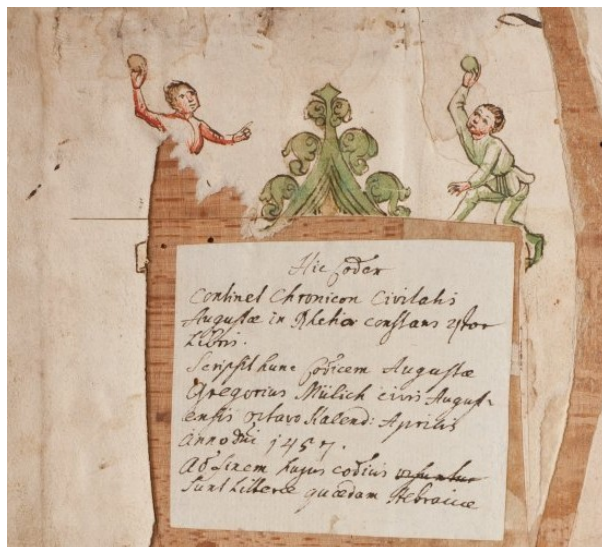 Hic Codex
Continet Chronicon Civitatis
Augustæ in Rhetia constans 4tuor
Libris.
Scripsit hunc Codicem Augustæ
Gregorius Mülich civis August-
ensis octavo Kalend: Aprilis
Anno Dni 1457.
Ad finem hujus codicis
Sunt Litteræ quædam Hebraicæ